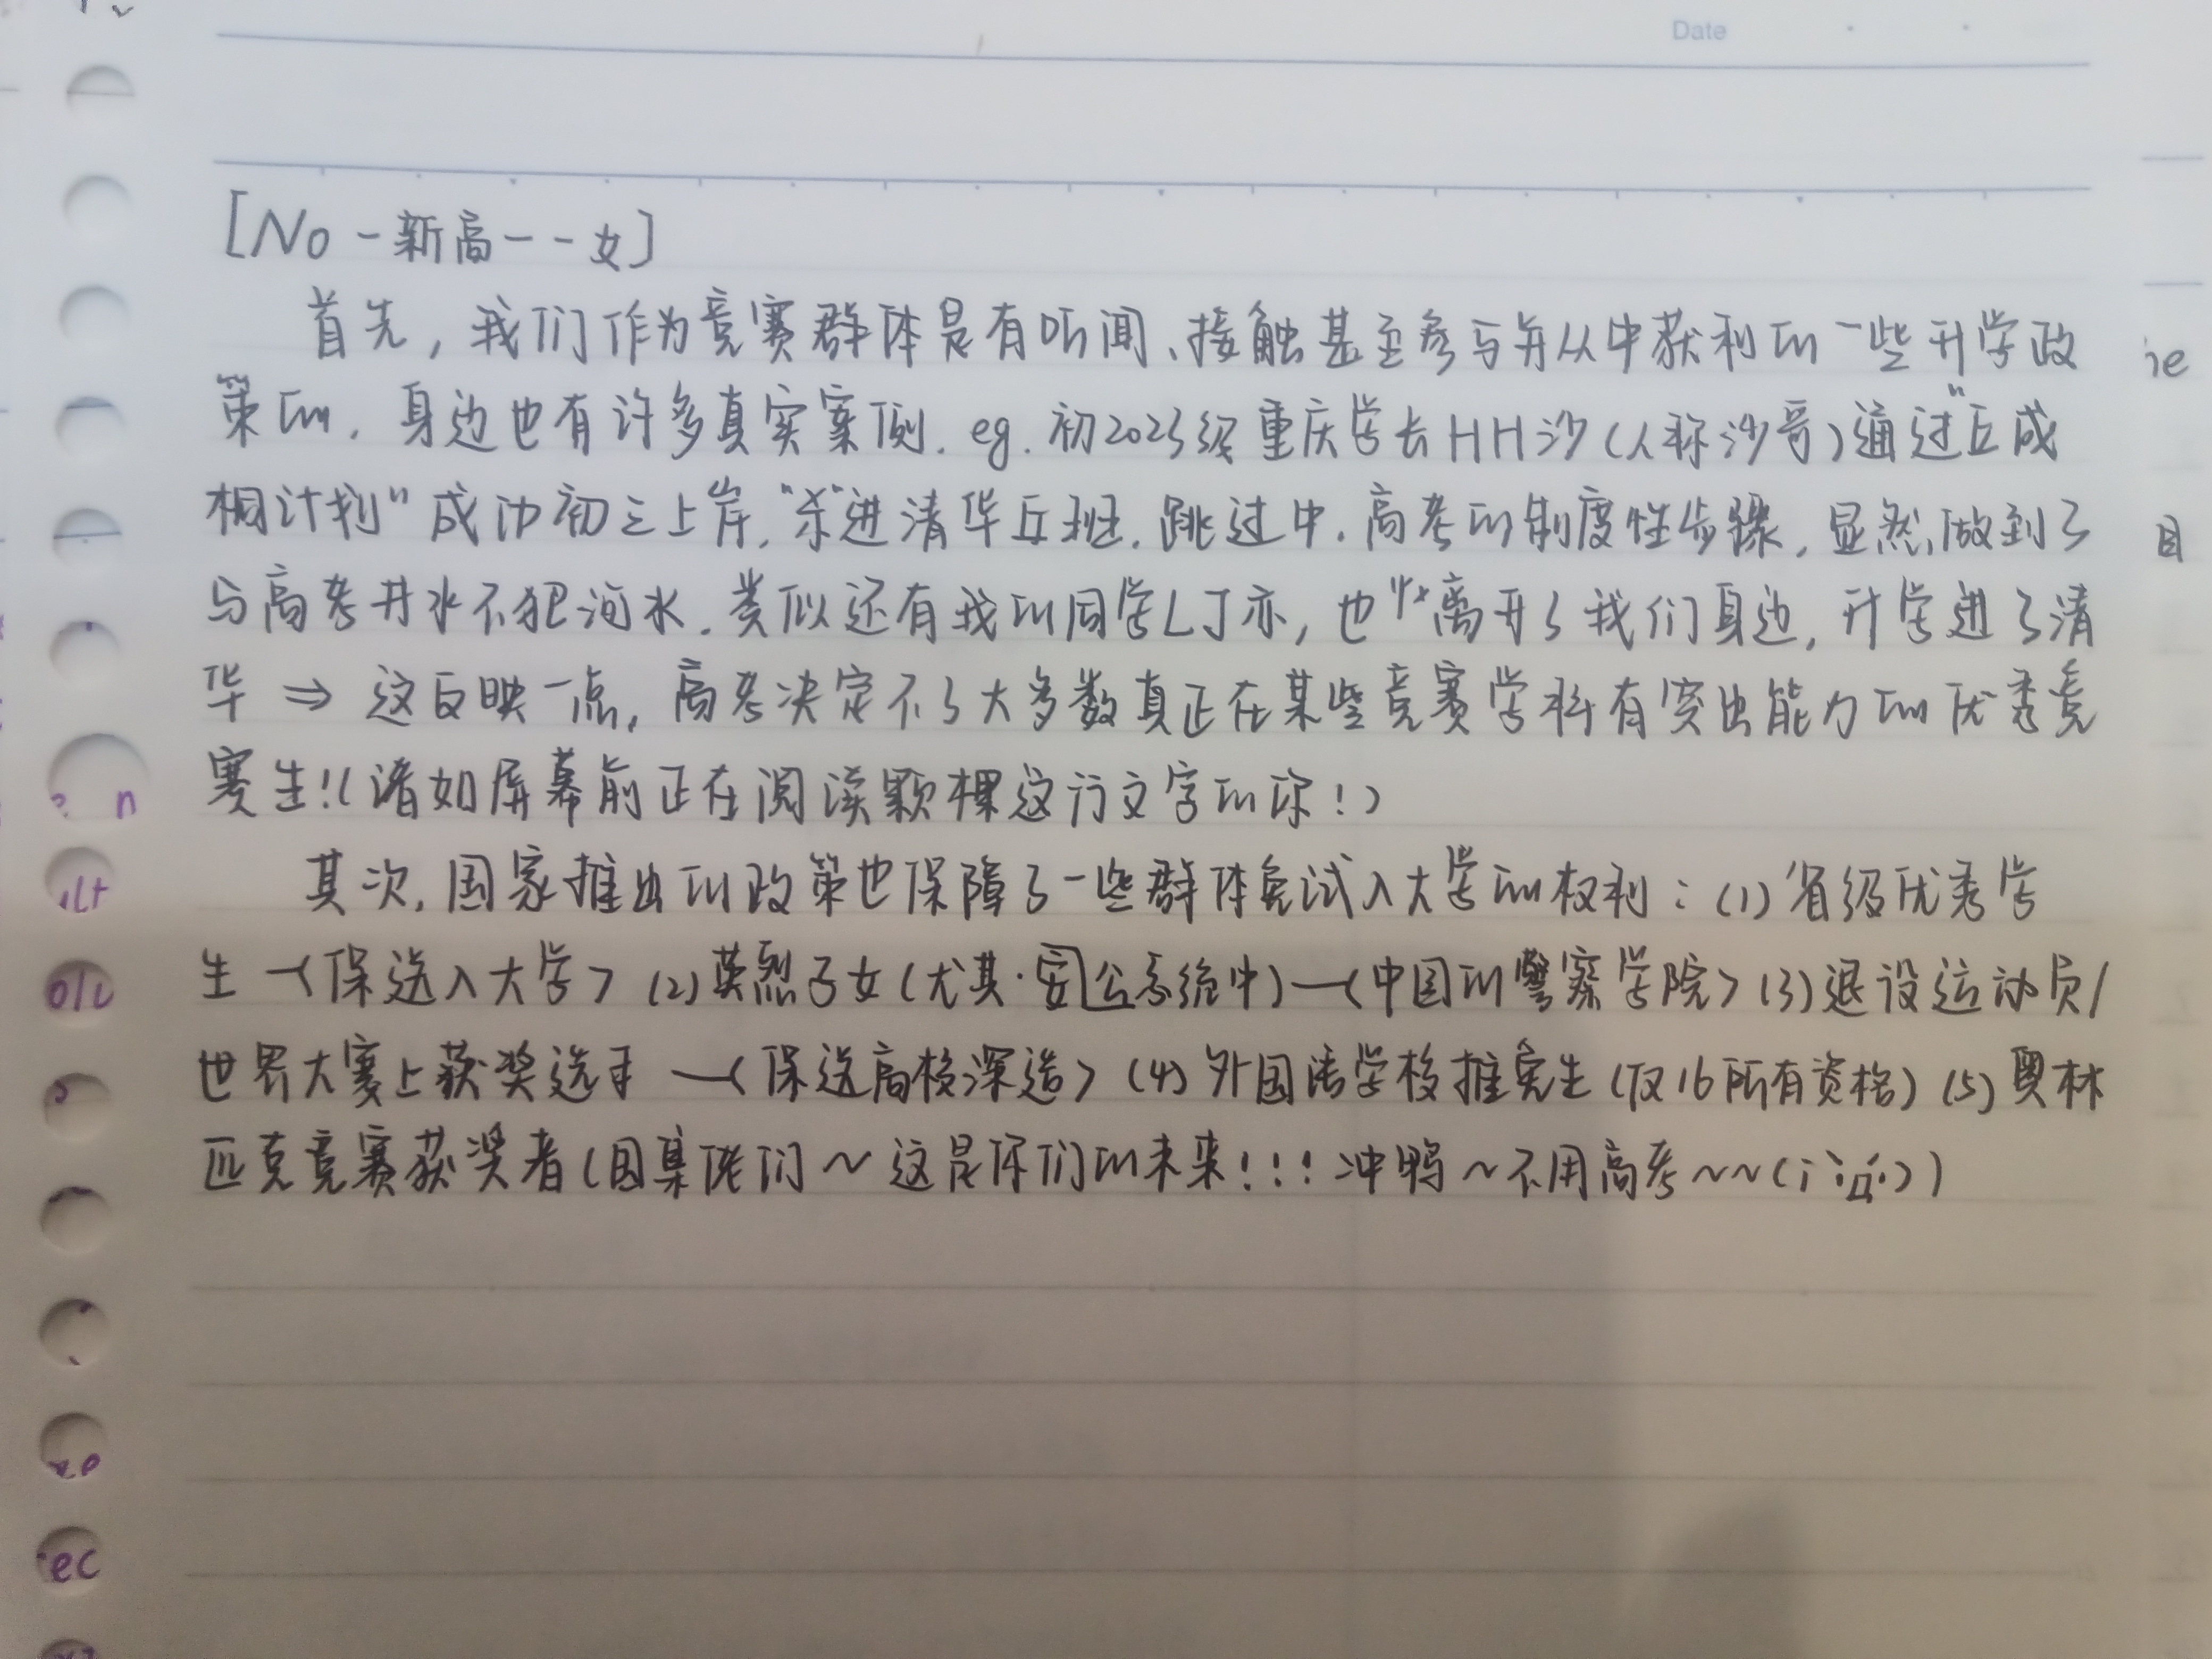 Date
[No-新高一-女]
首先，我们作为竞赛群体是有听闻、接触甚至参与并从中获利的一些升学政
策的，身边也有许多真实案例. eg. 初2023级重庆学长HH沙(人称沙哥)通过"丘成
桐计划"成功初三上岸,"杀"进清华丘班,跳过中、高考的制度性步骤,显然,做到了
与高考井水不犯河水.类似还有我的同学LJ亦,也离开了我们身边,升学进了清
华 ⇒ 这反映一点,高考决定不了大多数真正在某些竞赛学科有突出能力的优秀竞
赛生!(诸如屏幕前正在阅读颗粿这行文字的你!)
其次,国家推出的政策也保障了一些群体免试入大学的权利:(1)省级优秀学
生—<保送入大学> (2)英烈子女(尤其·公安系统中)—<中国的警察学院> (3)退役运动员/
世界大赛上获奖选手—<保送高校深造> (4)外国语学校推免生(仅16所有资格) (5)奥林
匹克竞赛获奖者(国集佬们~这是你们的未来!!!冲鸭~不用高考~~)
ie
目
n
ilt
ec